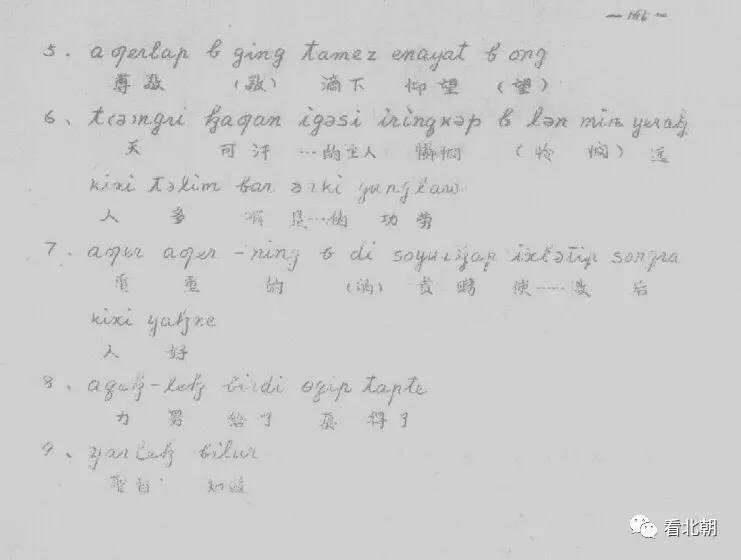 — 146 —
5、aƣerlap ɓ ging tamez enayat ɓ ong
尊敬 （敬） 滴下 仰望 （望）
6、təngri ⱪaƣan igəsi iringⱪəp ɓ lən min yeraⱪ
天 可汗 …的主人 怜悯 （怜 悯） 远
kixi təlim bar ərki yunglaw
人 多 是…的 功劳
7、aƣer aƣer -ning ɓ di soyurƣap ixlətip songra
重 重 的 （的） 赏赐 使……及 后
kixi yahxe
人 好
8、 birdi tapte
力 给了 得了
9、yarleⱪ bilur
知道
看北朝